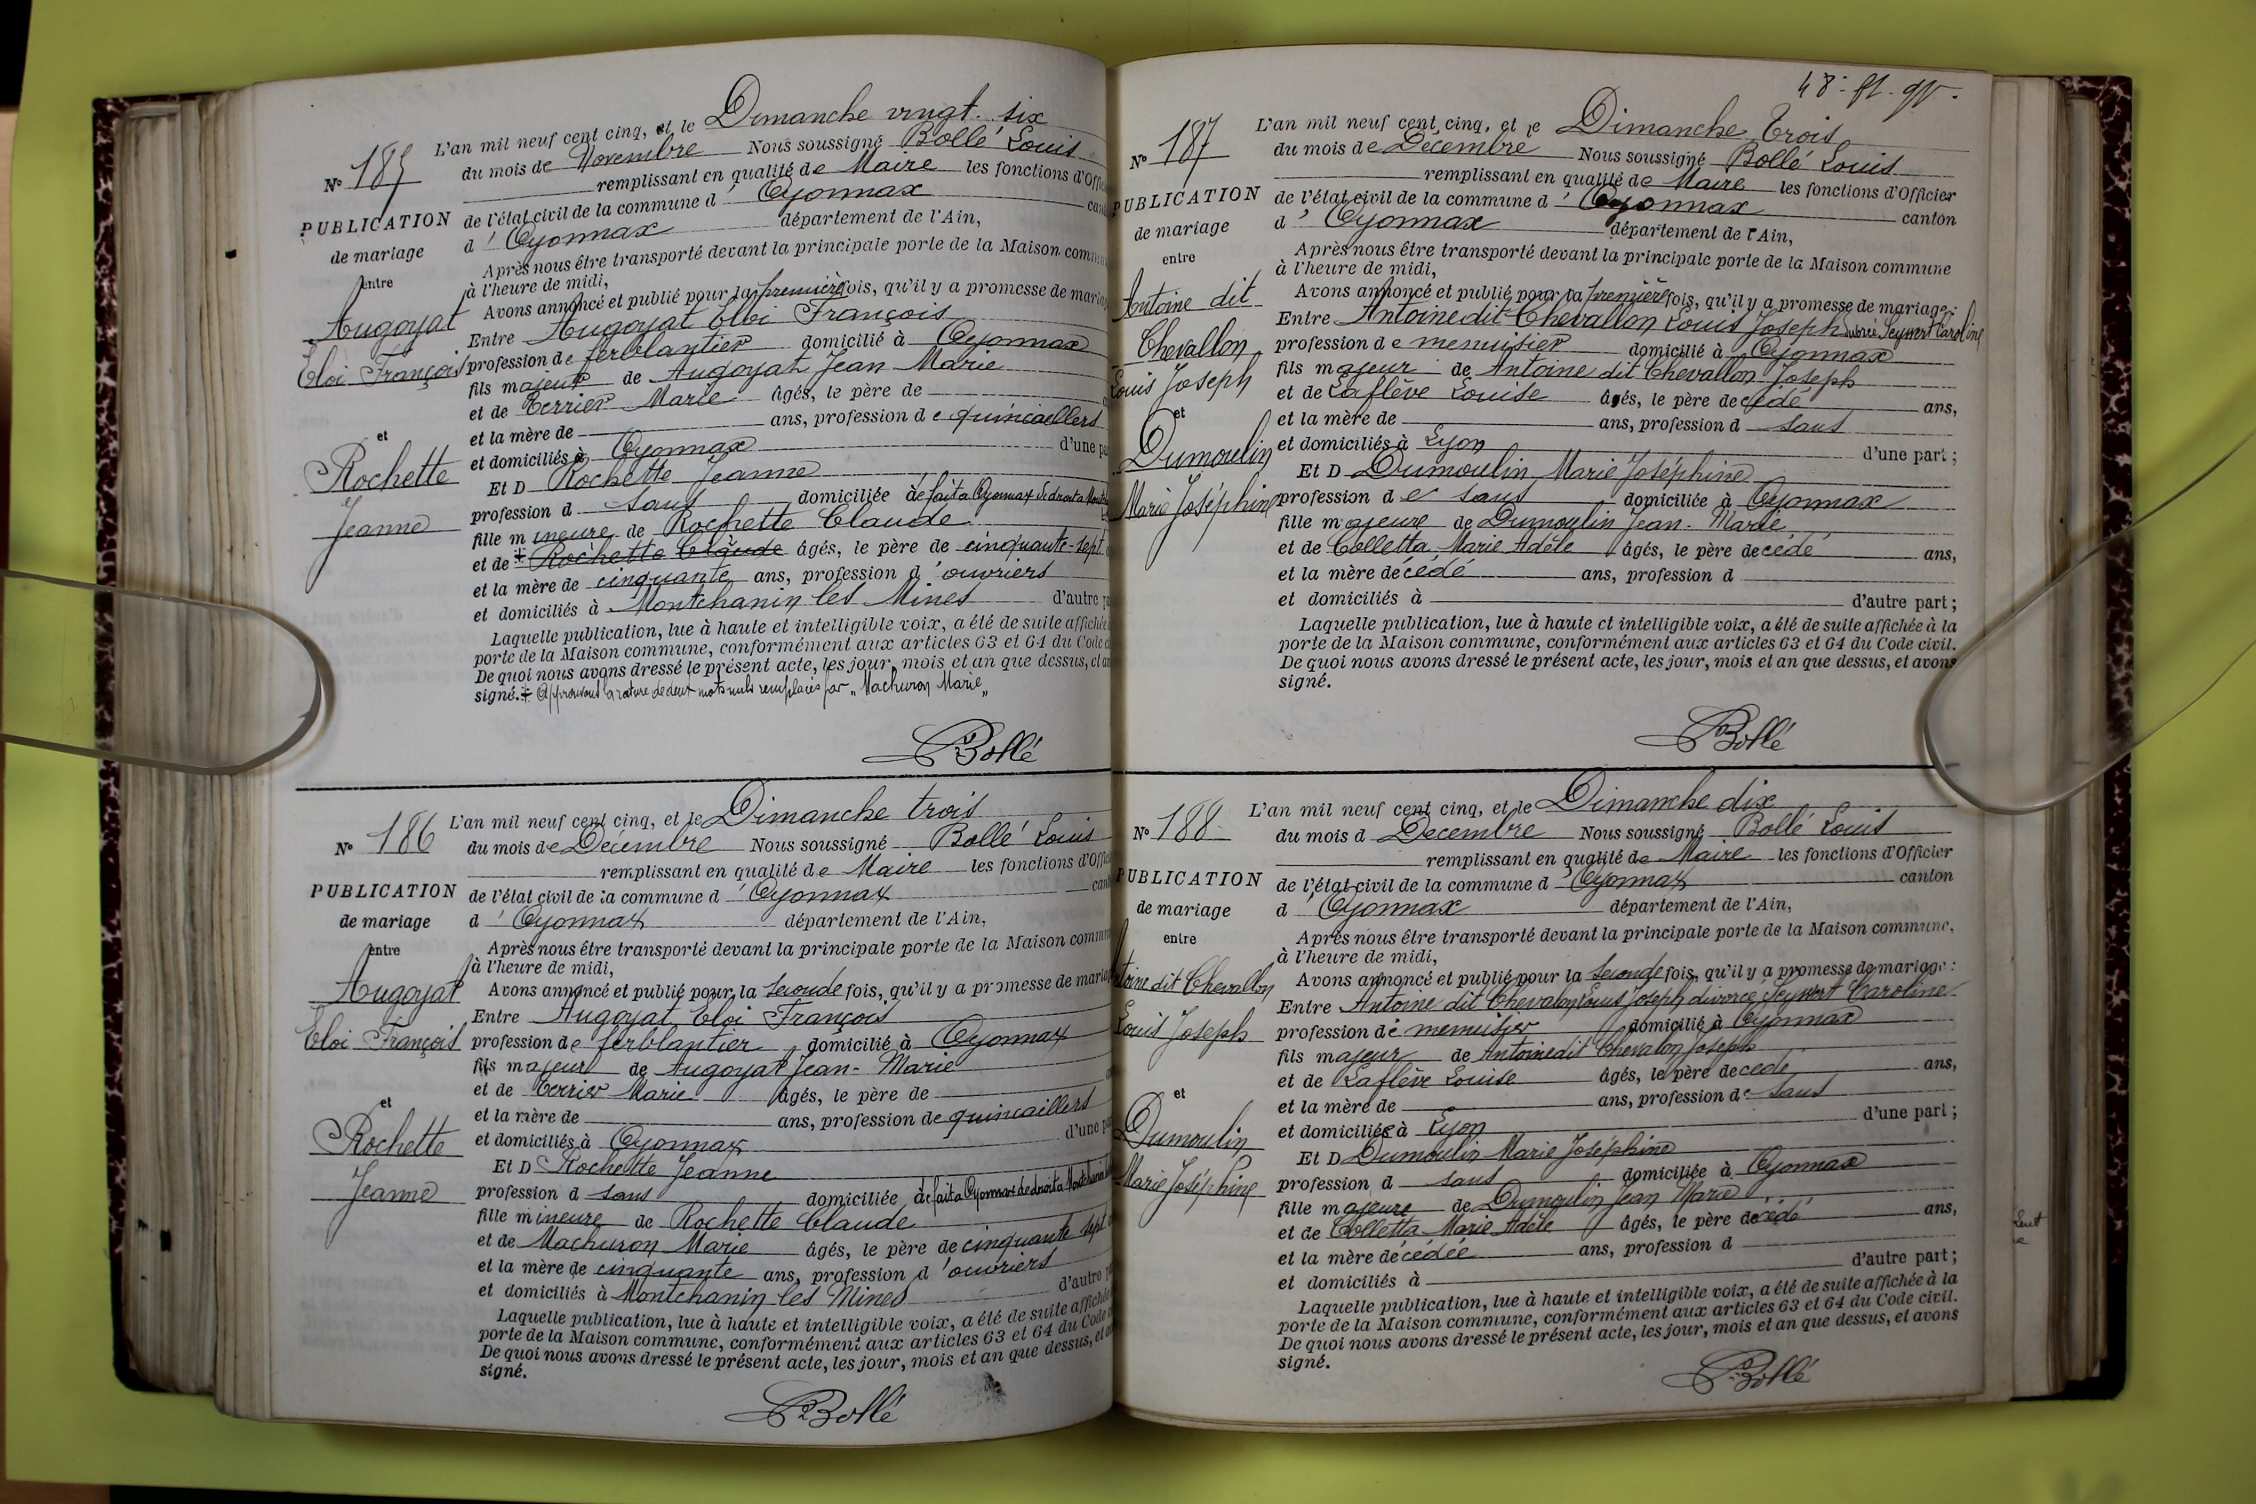 L'an mil neuf cent cinq, et le Dimanche vingt-six
Nº 185 du mois de Novembre Nous soussigné Bollé Louis
remplissant en qualité de Maire les fonctions d'Offic
PUBLICATION de l'état civil de la commune d' Oyonnax cant
de mariage d' Oyonnax département de l'Ain,
entre Après nous être transporté devant la principale porte de la Maison commun
à l'heure de midi,
Augoyat Avons annoncé et publié pour la première fois, qu'il y a promesse de mariag
Entre Augoyat Eloi François
Eloi François profession de ferblantier domicilié à Oyonnax
fils majeur de Augoyat Jean Marie
et de Terrier Marie âgés, le père de
et la mère de ans, profession de quincaillers
et et domiciliés à Oyonnax d'une pa
Rochette Et D Rochette Jeanne
profession d sans domiciliée à de fait à Oyonnax de droit à
Jeanne fille mineure de Rochette Claude
et de ‡ Rochette Claude âgés, le père de cinquante-sept
et la mère de cinquante ans, profession d'ouvriers
et domiciliés à Montchanin les Mines d'autre pa
Laquelle publication, lue à haute et intelligible voix, a été de suite affichée
porte de la Maison commune, conformément aux articles 63 et 64 du Code c
De quoi nous avons dressé le présent acte, les jour, mois et an que dessus, et av
signé. ‡ Approuvons la rature de deux mots nuls remplacés par „Machuron Marie„
Bollé
L'an mil neuf cent cinq, et le Dimanche trois
Nº 186 du mois de Décembre Nous soussigné Bollé Louis
remplissant en qualité de Maire les fonctions d'Offic
PUBLICATION de l'état civil de la commune d' Oyonnax cant
de mariage d' Oyonnax département de l'Ain,
entre Après nous être transporté devant la principale porte de la Maison commun
à l'heure de midi,
Augoyat Avons annoncé et publié pour la seconde fois, qu'il y a promesse de mariag
Entre Augoyat Eloi François
Eloi François profession de ferblantier domicilié à Oyonnax
fils majeur de Augoyat Jean-Marie
et de Terrier Marie âgés, le père de
et la mère de ans, profession de quincaillers
et et domiciliés à Oyonnax d'une pa
Rochette Et D Rochette Jeanne
Jeanne profession d sans domiciliée à de fait à Oyonnax de droit à Montchanin
fille mineure de Rochette Claude
et de Machuron Marie âgés, le père de cinquante sept
et la mère de cinquante ans, profession d'ouvriers
et domiciliés à Montchanin les Mines d'autre pa
Laquelle publication, lue à haute et intelligible voix, a été de suite affichée
porte de la Maison commune, conformément aux articles 63 et 64 du Code
De quoi nous avons dressé le présent acte, les jour, mois et an que dessus, et av
signé.
Bollé
48
L'an mil neuf cent cinq, et le Dimanche Trois
Nº 187 du mois de Décembre Nous soussigné Bollé Louis
remplissant en qualité de Maire les fonctions d'Officier
PUBLICATION de l'état civil de la commune d' Oyonnax canton
de mariage d' Oyonnax département de l'Ain,
entre Après nous être transporté devant la principale porte de la Maison commune
à l'heure de midi,
Antoine dit Avons annoncé et publié pour la première fois, qu'il y a promesse de mariage :
Entre Antoine dit Chevallon Louis Joseph divorcé Seyvert Caroline
Chevallon profession de menuisier domicilié à Oyonnax
Louis Joseph fils majeur de Antoine dit Chevallon Joseph
et de Laflève Louise âgés, le père décédé ans,
et et la mère de ans, profession d sans
Dumoulin et domiciliés à Lyon d'une part ;
Et D Dumoulin Marie Joséphine
Marie Joséphine profession de sans domiciliée à Oyonnax
fille majeure de Dumoulin Jean-Marie
et de Colletta Marie Adèle âgés, le père décédé ans,
et la mère décédé ans, profession d
et domiciliés à d'autre part ;
Laquelle publication, lue à haute et intelligible voix, a été de suite affichée à la
porte de la Maison commune, conformément aux articles 63 et 64 du Code civil.
De quoi nous avons dressé le présent acte, les jour, mois et an que dessus, et avons
signé.
Bollé
L'an mil neuf cent cinq, et le Dimanche dix
Nº 188 du mois d Décembre Nous soussigné Bollé Louis
remplissant en qualité de Maire les fonctions d'Officier
PUBLICATION de l'état civil de la commune d' Oyonnax canton
de mariage d' Oyonnax département de l'Ain,
entre Après nous être transporté devant la principale porte de la Maison commune,
à l'heure de midi,
Antoine dit Chevallon Avons annoncé et publié pour la seconde fois, qu'il y a promesse de mariage :
Entre Antoine dit Chevalon Louis Joseph divorcé Seyvert Caroline
Louis Joseph profession de menuisier domicilié à Oyonnax
fils majeur de Antoine dit Chevalon Joseph
et de Laflève Louise âgés, le père décédé ans,
et et la mère de ans, profession de sans
Dumoulin et domiciliée à Lyon d'une part ;
Et D Dumoulin Marie Joséphine
Marie Joséphine profession d sans domiciliée à Oyonnax
fille majeure de Dumoulin Jean Marie
et de Colletta Marie Adèle âgés, le père décédé ans,
et la mère décédée ans, profession d
et domiciliés à d'autre part ;
Laquelle publication, lue à haute et intelligible voix, a été de suite affichée à la
porte de la Maison commune, conformément aux articles 63 et 64 du Code civil.
De quoi nous avons dressé le présent acte, les jour, mois et an que dessus, et avons
signé.
Bollé